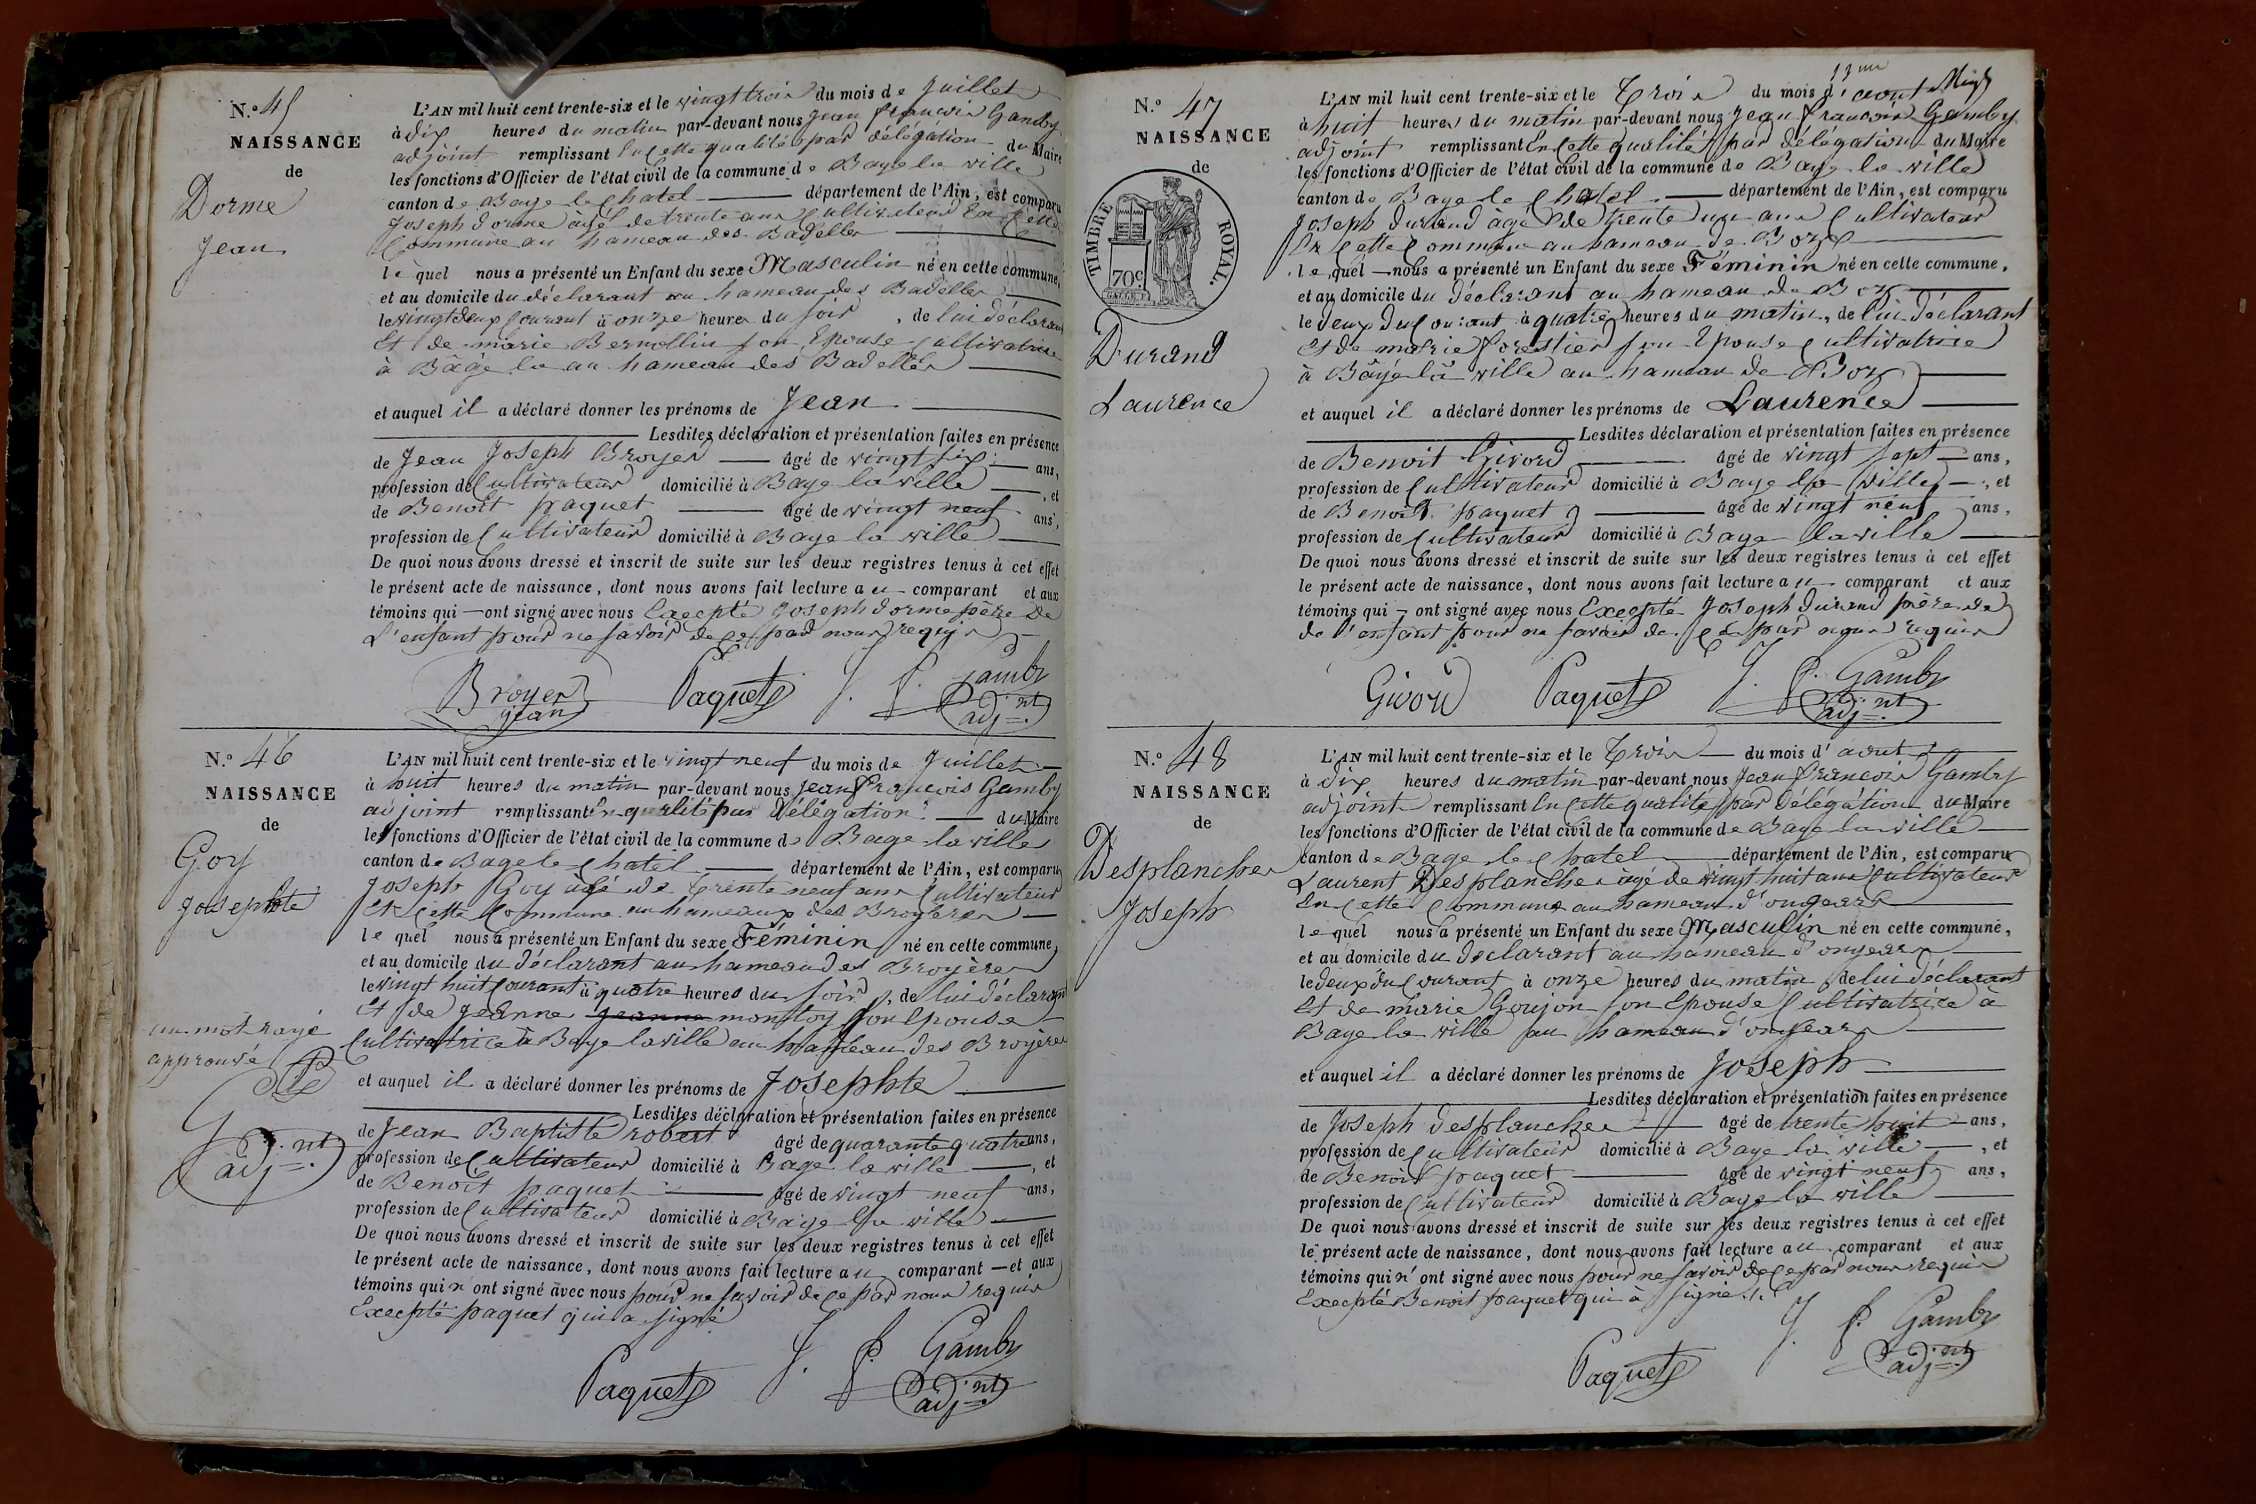 N.º 45
NAISSANCE
de
Dorme
Jean
L'AN mil huit cent trente-six et le vingt trois du mois de Juillet
à dix heures du matin par-devant nous Jean François Gamby
adjoint remplissant en cette qualité par délégation du Maire
les fonctions d'Officier de l'état civil de la commune de Bage la ville
canton de Bage le Chatel département de l'Ain, est comparu
Joseph Dorme âgé de trente ans Cultivateur en cette
Commune au hameau des Badelles
le quel nous a présenté un Enfant du sexe Masculin né en cette commune,
et au domicile du déclarant au hameau des Badelles
le vingt deux Courant à onze heures du soir, de lui déclarant
Et de marie Bernollin son Epouse Cultivatrice
à Bâgé la au hameau des Badelles
et auquel il a déclaré donner les prénoms de Jean
Lesdites déclaration et présentation faites en présence
de Jean Joseph Broyer âgé de vingt six ans,
profession de Cultivateur domicilié à Bage la ville, et
de Benoit paquet âgé de vingt neuf ans,
profession de Cultivateur domicilié à Bage la ville
De quoi nous avons dressé et inscrit de suite sur les deux registres tenus à cet effet
le présent acte de naissance, dont nous avons fait lecture au comparant et aux
témoins qui ont signé avec nous Excepté Joseph Dorme père de
L'enfant pour ne savoir de ce par nous requis
Broyer Paquet J. f. Gamby
jean adj.nt
N.º 46
NAISSANCE
de
Goy
Josephte
un mot rayé
approuvé
adj.nt
L'AN mil huit cent trente-six et le vingt neuf du mois de Juillet
à huit heures du matin par-devant nous Jean François Gamby
adjoint remplissant En qualité par Délégation du Maire
les fonctions d'Officier de l'état civil de la commune de Bage la ville
canton de Bage le Chatel département de l'Ain, est comparu
Joseph Goy agé de trente neuf ans Cultivateur
En cette Commune au hameaux des Broyères
le quel nous a présenté un Enfant du sexe Féminin né en cette commune,
et au domicile du déclarant au hameau des Broyères
le vingt huit Courant à quatre heures du soir, de lui déclarant
Et de Jeanne Jeanne montoy son Epouse
Cultivatrice à Bage la ville au hameau des Broyères
et auquel il a déclaré donner les prénoms de Josephte
Lesdites déclaration et présentation faites en présence
de Jean Baptiste robert âgé de quarante quatre ans,
profession de Cultivateur domicilié à Bage la ville, et
de Benoit paquet âgé de vingt neuf ans,
profession de Cultivateur domicilié à Bage la ville
De quoi nous avons dressé et inscrit de suite sur les deux registres tenus à cet effet
le présent acte de naissance, dont nous avons fait lecture au comparant et aux
témoins qui n'ont signé avec nous pour ne savoir de ce par nous requis
Excepté paquet qui a signé
Paquet J. f. Gamby
adj.nt
N.º 47
NAISSANCE
de
TIMBRE ROYAL.
70c
Durand
Laurence
L'AN mil huit cent trente-six et le Trois du mois d'aout
à huit heures du matin par-devant nous Jean François Gamby
adjoint remplissant En cette qualité par délégation du Maire
les fonctions d'Officier de l'état civil de la commune de Bage la ville
canton de Bage le Chatel département de l'Ain, est comparu
Joseph Durand âgé de trente un ans Cultivateur
En Cette Commune au hameau de Boz
le quel nous a présenté un Enfant du sexe Féminin né en cette commune,
et au domicile du déclarant au hameau de Boz
le deux du Courant à quatre heures du matin, de lui déclarant
Et de marie forestier son Epouse Cultivatrice
à Bâgé la ville au hameau de Boz
et auquel il a déclaré donner les prénoms de Laurence
Lesdites déclaration et présentation faites en présence
de Benoit Givord âgé de vingt sept ans,
profession de Cultivateur domicilié à Bage la ville, et
de Benoit paquet âgé de vingt neuf ans,
profession de Cultivateur domicilié à Bage la ville
De quoi nous avons dressé et inscrit de suite sur les deux registres tenus à cet effet
le présent acte de naissance, dont nous avons fait lecture au comparant et aux
témoins qui ont signé avec nous Excepté Joseph Durand père de
de l'enfant pour ne savoir de ce par nous requis
Givord Paquet J. f. Gamby
adj.nt
N.º 48
NAISSANCE
de
Desplanches
Joseph
L'AN mil huit cent trente-six et le Trois du mois d'aout
à dix heures du matin par-devant nous Jean François Gamby
adjoint remplissant En Cette qualité par Délégation du Maire
les fonctions d'Officier de l'état civil de la commune de Bage la ville
canton de Bage le Chatel département de l'Ain, est comparu
Laurent Desplanches âgé de vingt huit ans Cultivateur
En Cette Commune au hameau
le quel nous a présenté un Enfant du sexe Masculin né en cette commune,
et au domicile du déclarant au hameau
le deux du Courant à onze heures du matin, de lui déclarant
Et de marie Goujon son Epouse Cultivatrice à
Bage la ville au hameau
et auquel il a déclaré donner les prénoms de Joseph
Lesdites déclaration et présentation faites en présence
de Joseph Desplanches âgé de trente huit ans,
profession de Cultivateur domicilié à Bage la ville, et
de Benoit paquet âgé de vingt neuf ans,
profession de Cultivateur domicilié à Bage la ville
De quoi nous avons dressé et inscrit de suite sur les deux registres tenus à cet effet
le présent acte de naissance, dont nous avons fait lecture au comparant et aux
témoins qui n'ont signé avec nous pour ne savoir de ce par nous requis
Excepté Benoit paquet qui à signé
Paquet J. f. Gamby
adj.nt